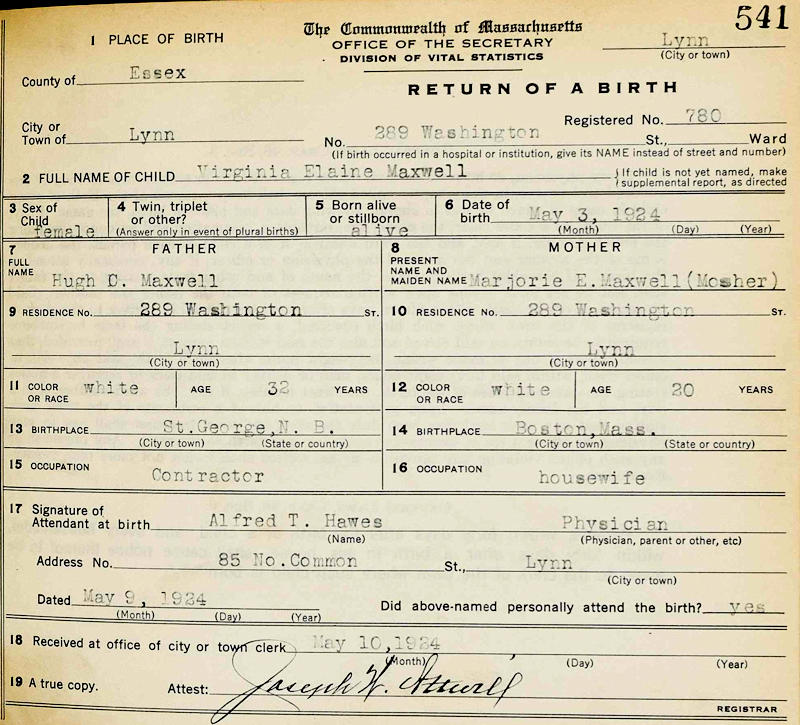 541
The Commonwealth of Massachusetts
OFFICE OF THE SECRETARY
DIVISION OF VITAL STATISTICS
Lynn
(City or town)
1 PLACE OF BIRTH
County of Essex
RETURN OF A BIRTH
Registered No. 780
City or
Town of Lynn No. 289 Washington St., Ward
(If birth occurred in a hospital or institution, give its NAME instead of street and number)
2 FULL NAME OF CHILD Virginia Elaine Maxwell {If child is not yet named, make
supplemental report, as directed
3 Sex of
Child
female
4 Twin, triplet
or other?
(Answer only in event of plural births)
5 Born alive
or stillborn
alive
6 Date of
birth May 3, 1924
(Month) (Day) (Year)
7 FATHER
FULL
NAME Hugh C. Maxwell
8 MOTHER
PRESENT
NAME AND
MAIDEN NAME Marjorie E. Maxwell (Mosher)
9 RESIDENCE No. 289 Washington ST.
Lynn
(City or town)
10 RESIDENCE No. 289 Washington ST.
Lynn
(City or town)
11 COLOR
OR RACE white AGE 32 YEARS
12 COLOR
OR RACE white AGE 20 YEARS
13 BIRTHPLACE St.George,N. B.
(City or town) (State or country)
14 BIRTHPLACE Boston,Mass.
(City or town) (State or country)
15 OCCUPATION
Contractor
16 OCCUPATION
housewife
17 Signature of
Attendant at birth Alfred T. Hawes Physician
(Name) (Physician, parent or other, etc)
Address No. 85 No.Common St., Lynn
(City or town)
Dated May 9, 1924 Did above-named personally attend the birth? yes
(Month) (Day) (Year)
18 Received at office of city or town clerk May 10,1924
(Month) (Day) (Year)
19 A true copy. Attest: Joseph W. Attwill
REGISTRAR